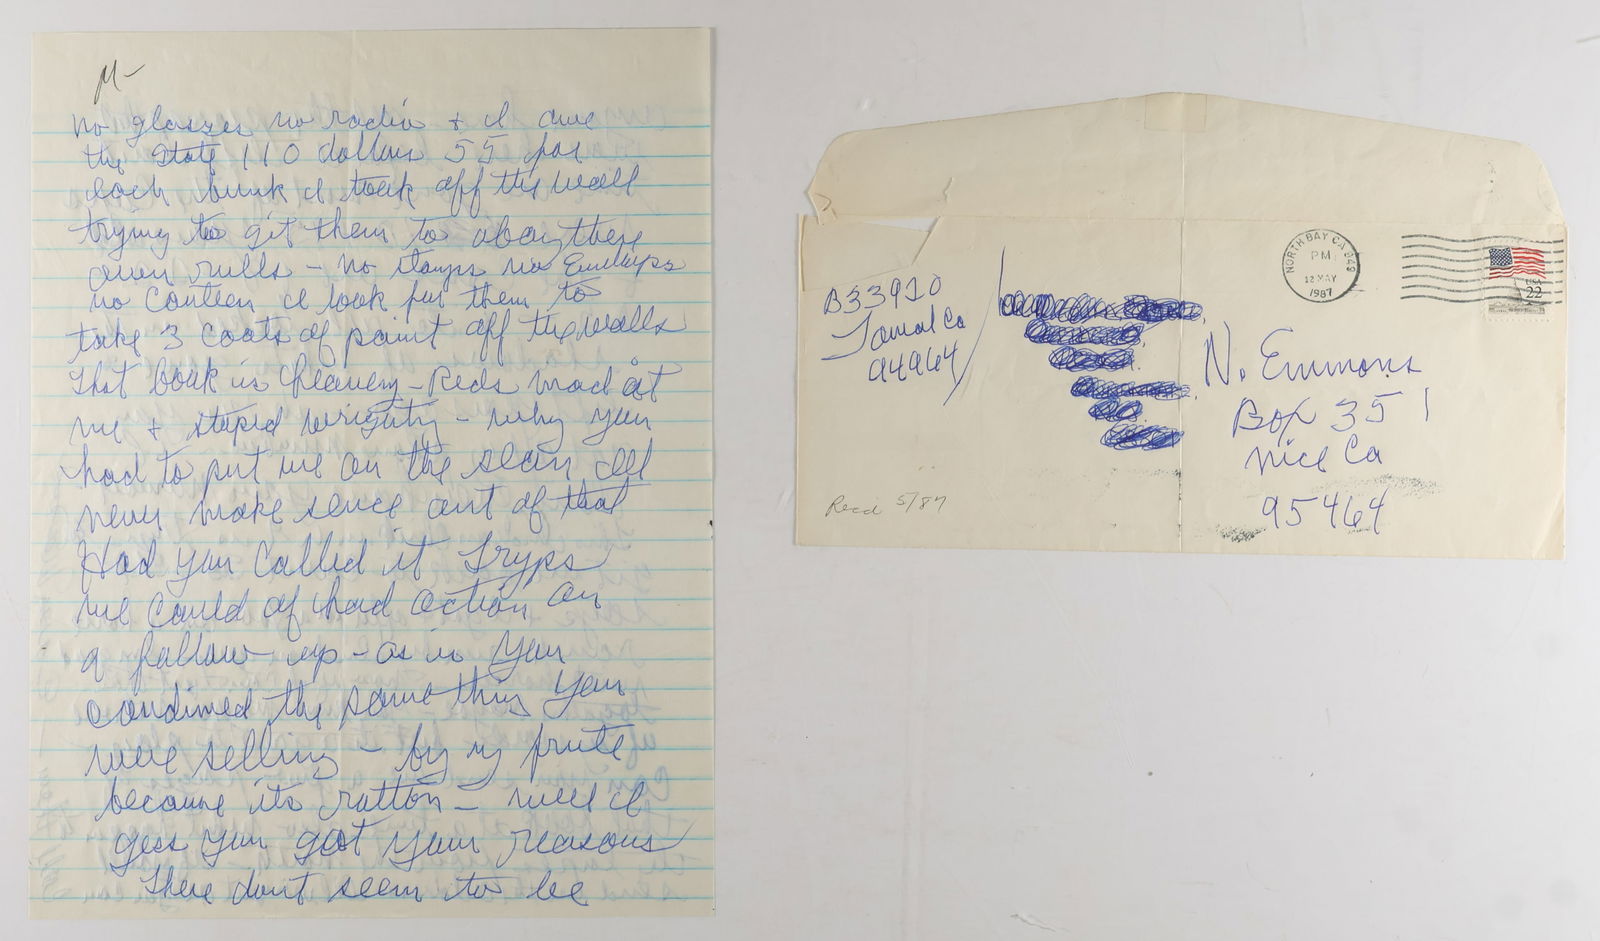 M-
no glasses no radio + I owe
the State 110 dollars 55 for
each bunk I took off the wall
trying to git them to abay there
own rulls - no stamps no Envelups
no Conteen I look for them to
take 3 Coats of paint off the walls
That book is heaveny - Reds mad at
me + stupid wrighting - why you
had to put me on the Ill
never make sence out of that
Had you Called it Tryps
we Could of had action on
a follow - up - as is you
condimed the same thing you
were selling - by my frute
because its rotton - well I
gess you got your reasons
There dont seem to be
B33920
Tamal Ca
94964
NORTH BAY CA 949
PM
12 MAY
1987
USA
22
N. Emmons
Box 351
Nice Ca
95464
Recd 5/87